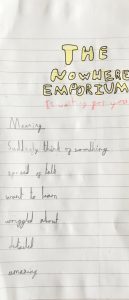 THE
NOWHERE
EMPORIUM
Is waiting for you
Meaning
Suddenly think of something
spread of talk
want to learn
wriggled about
detailed
amazing